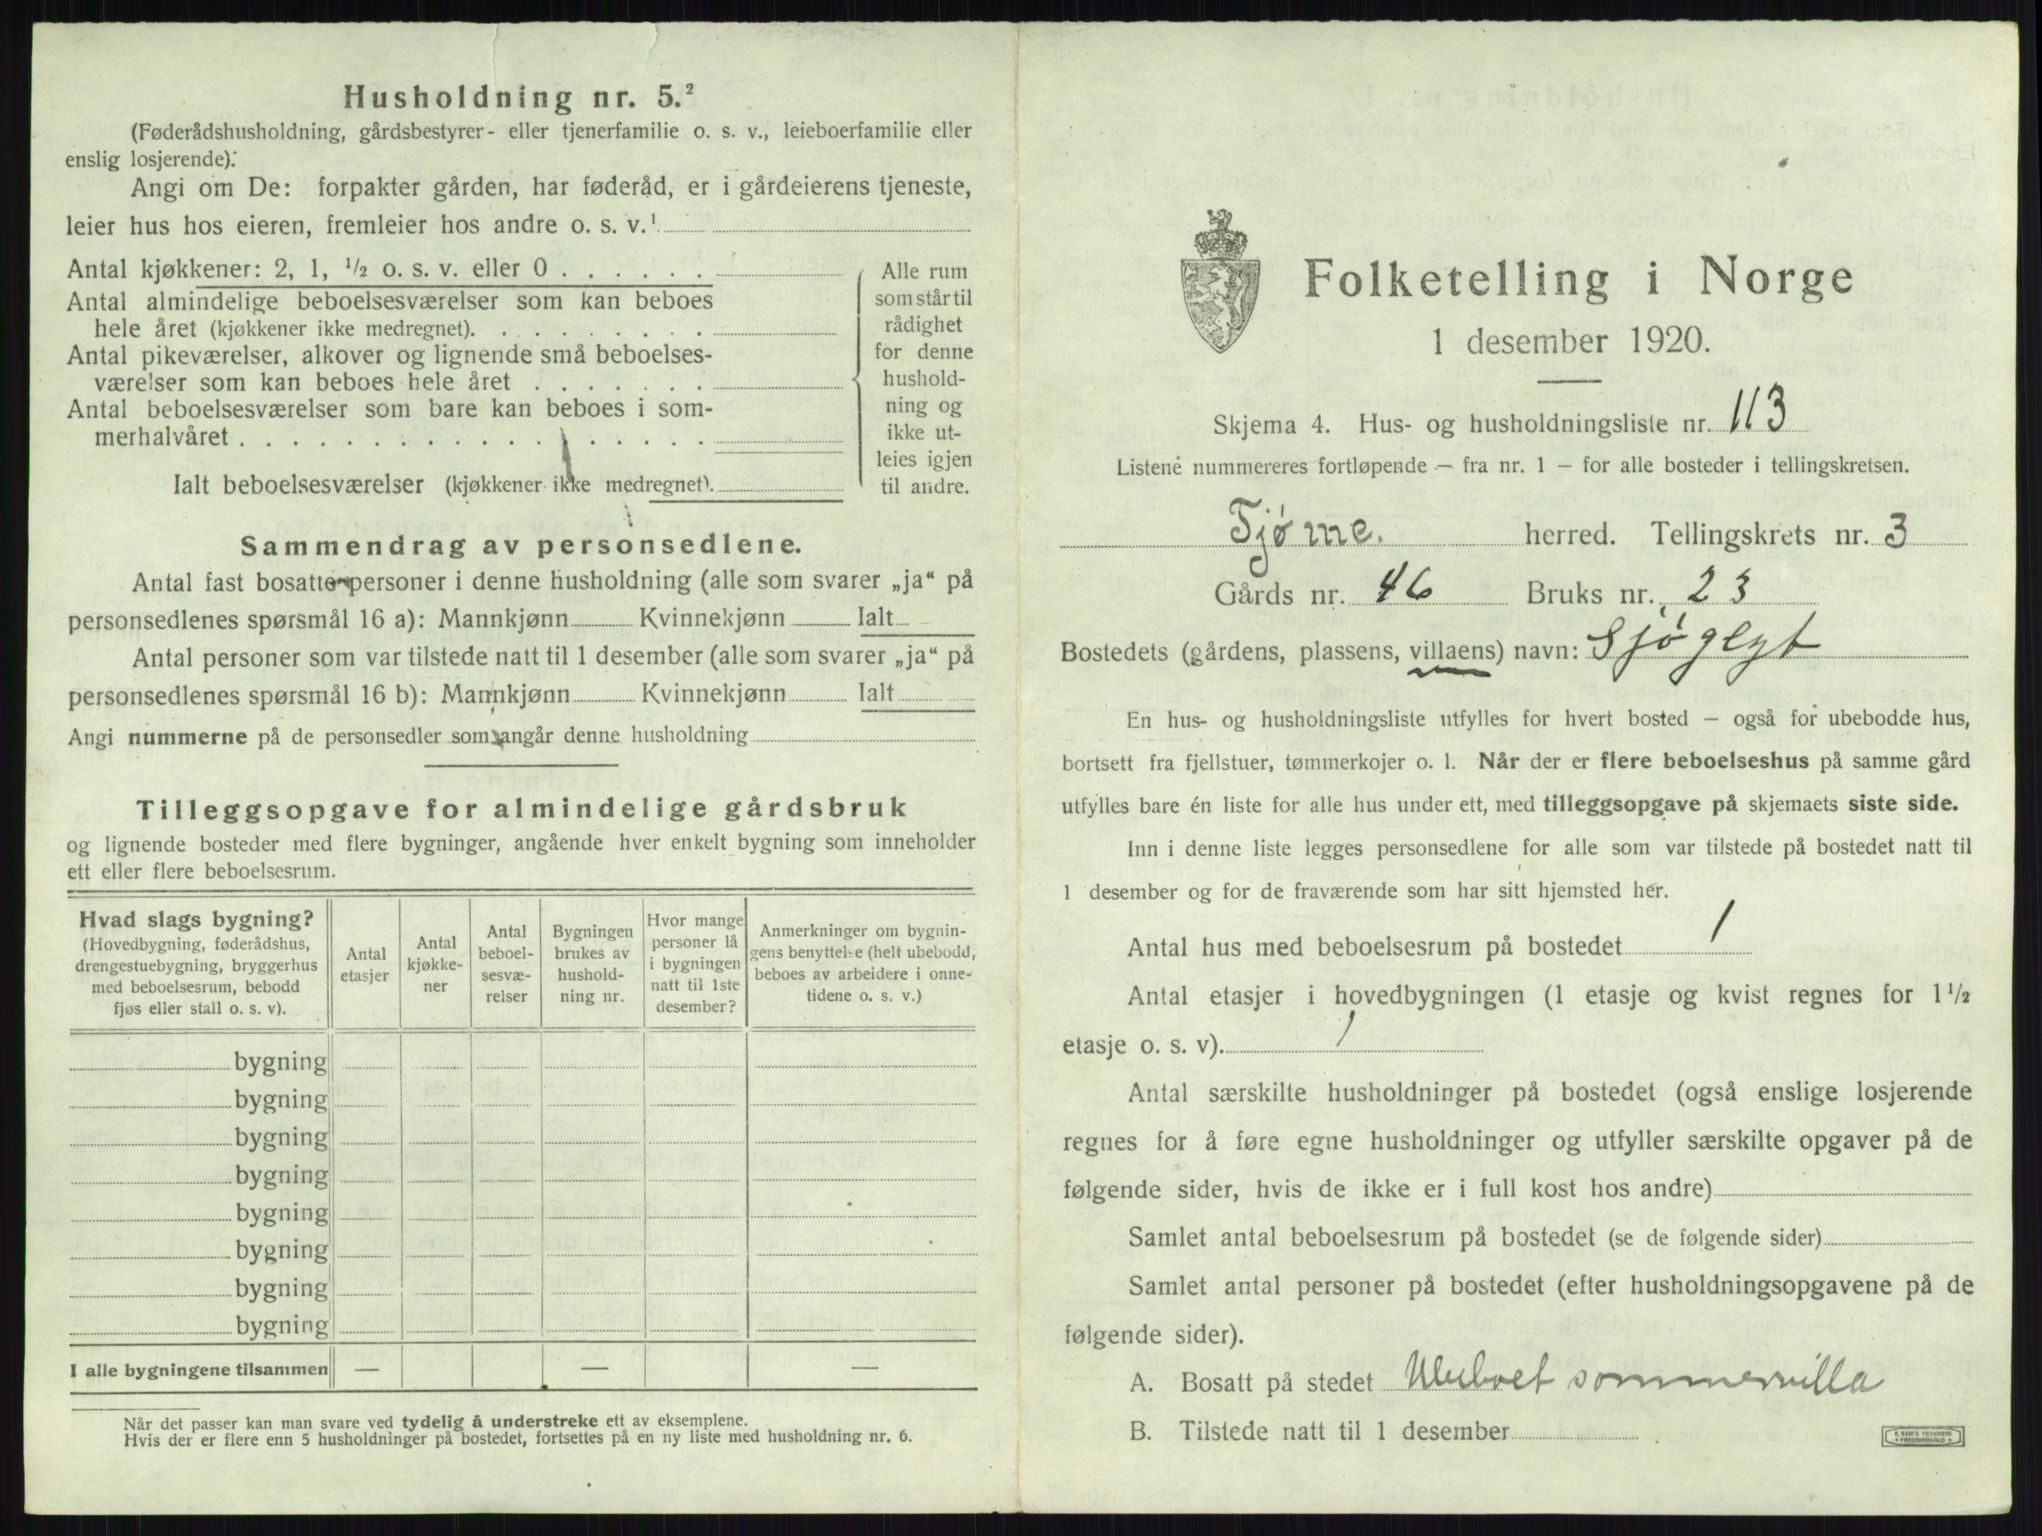 Husholdning nr. 5.²
(Føderådshusholdning, gårdsbestyrer- eller tjenerfamilie o. s. v., leieboerfamilie eller
enslig losjerende).
Angi om De: forpakter gården, har føderåd, er i gårdeierens tjeneste,
leier hus hos eieren, fremleier hos andre o. s. v.¹
Antal kjøkkener: 2, 1, ½ o. s. v. eller 0 . . . . . .
Antal almindelige beboelsesværelser som kan beboes
hele året (kjøkkener ikke medregnet). . . . . . . . .
Antal pikeværelser, alkover og lignende små beboelses-
værelser som kan beboes hele året . . . . . . .
Antal beboelsesværelser som bare kan beboes i som-
merhalvåret . . . . . . . . . . . . . . . . . .
Ialt beboelsesværelser (kjøkkener ikke medregnet).
Alle rum
som står til
rådighet
for denne
hushold-
ning og
ikke ut-
leies igjen
til andre.
Sammendrag av personsedlene.
Antal fast bosatte personer i denne husholdning (alle som svarer „ja“ på
personsedlenes spørsmål 16 a): Mannkjønn Kvinnekjønn Ialt
Antal personer som var tilstede natt til 1 desember (alle som svarer „ja“ på
personsedlenes spørsmål 16 b): Mannkjønn Kvinnekjønn Ialt
Angi nummerne på de personsedler som angår denne husholdning
Tilleggsopgave for almindelige gårdsbruk
og lignende bosteder med flere bygninger, angående hver enkelt bygning som inneholder
ett eller flere beboelsesrum.
Hvad slags bygning?
(Hovedbygning, føderådshus,
drengestuebygning, bryggerhus
med beboelsesrum, bebodd
fjøs eller stall o. s. v).
Antal
etasjer
Antal
kjøkke-
ner
Antal
beboel-
sesvæ-
relser
Bygningen
brukes av
hushold-
ning nr.
Hvor mange
personer lå
i bygningen
natt til 1ste
desember?
Anmerkninger om bygnin-
gens benyttelse (helt ubebodd,
beboes av arbeidere i onne-
tidene o. s. v.)
bygning
bygning
bygning
bygning
bygning
bygning
bygning
bygning
I alle bygningene tilsammen — — —
Når det passer kan man svare ved tydelig å understreke ett av eksemplene.
Hvis der er flere enn 5 husholdninger på bostedet, fortsettes på en ny liste med husholdning nr. 6.
Folketelling i Norge
1 desember 1920.
Skjema 4. Hus- og husholdningsliste nr. 113
Listene nummereres fortløpende — fra nr. 1 — for alle bosteder i tellingskretsen.
Tjøme. herred. Tellingskrets nr. 3
Gårds nr. 46 Bruks nr. 23
Bostedets (gårdens, plassens, villaens) navn: Sjøglyt
En hus- og husholdningsliste utfylles for hvert bosted — også for ubebodde hus,
bortsett fra fjellstuer, tømmerkojer o. l. Når der er flere beboelseshus på samme gård
utfylles bare én liste for alle hus under ett, med tilleggsopgave på skjemaets siste side.
Inn i denne liste legges personsedlene for alle som var tilstede på bostedet natt til
1 desember og for de fraværende som har sitt hjemsted her.
Antal hus med beboelsesrum på bostedet 1
Antal etasjer i hovedbygningen (1 etasje og kvist regnes for 1½
etasje o. s. v). 1
Antal særskilte husholdninger på bostedet (også enslige losjerende
regnes for å føre egne husholdninger og utfyller særskilte opgaver på de
følgende sider, hvis de ikke er i full kost hos andre)
Samlet antal beboelsesrum på bostedet (se de følgende sider)
Samlet antal personer på bostedet (efter husholdningsopgavene på de
følgende sider).
A. Bosatt på stedet Ubeboet sommervilla
B. Tilstede natt til 1 desember